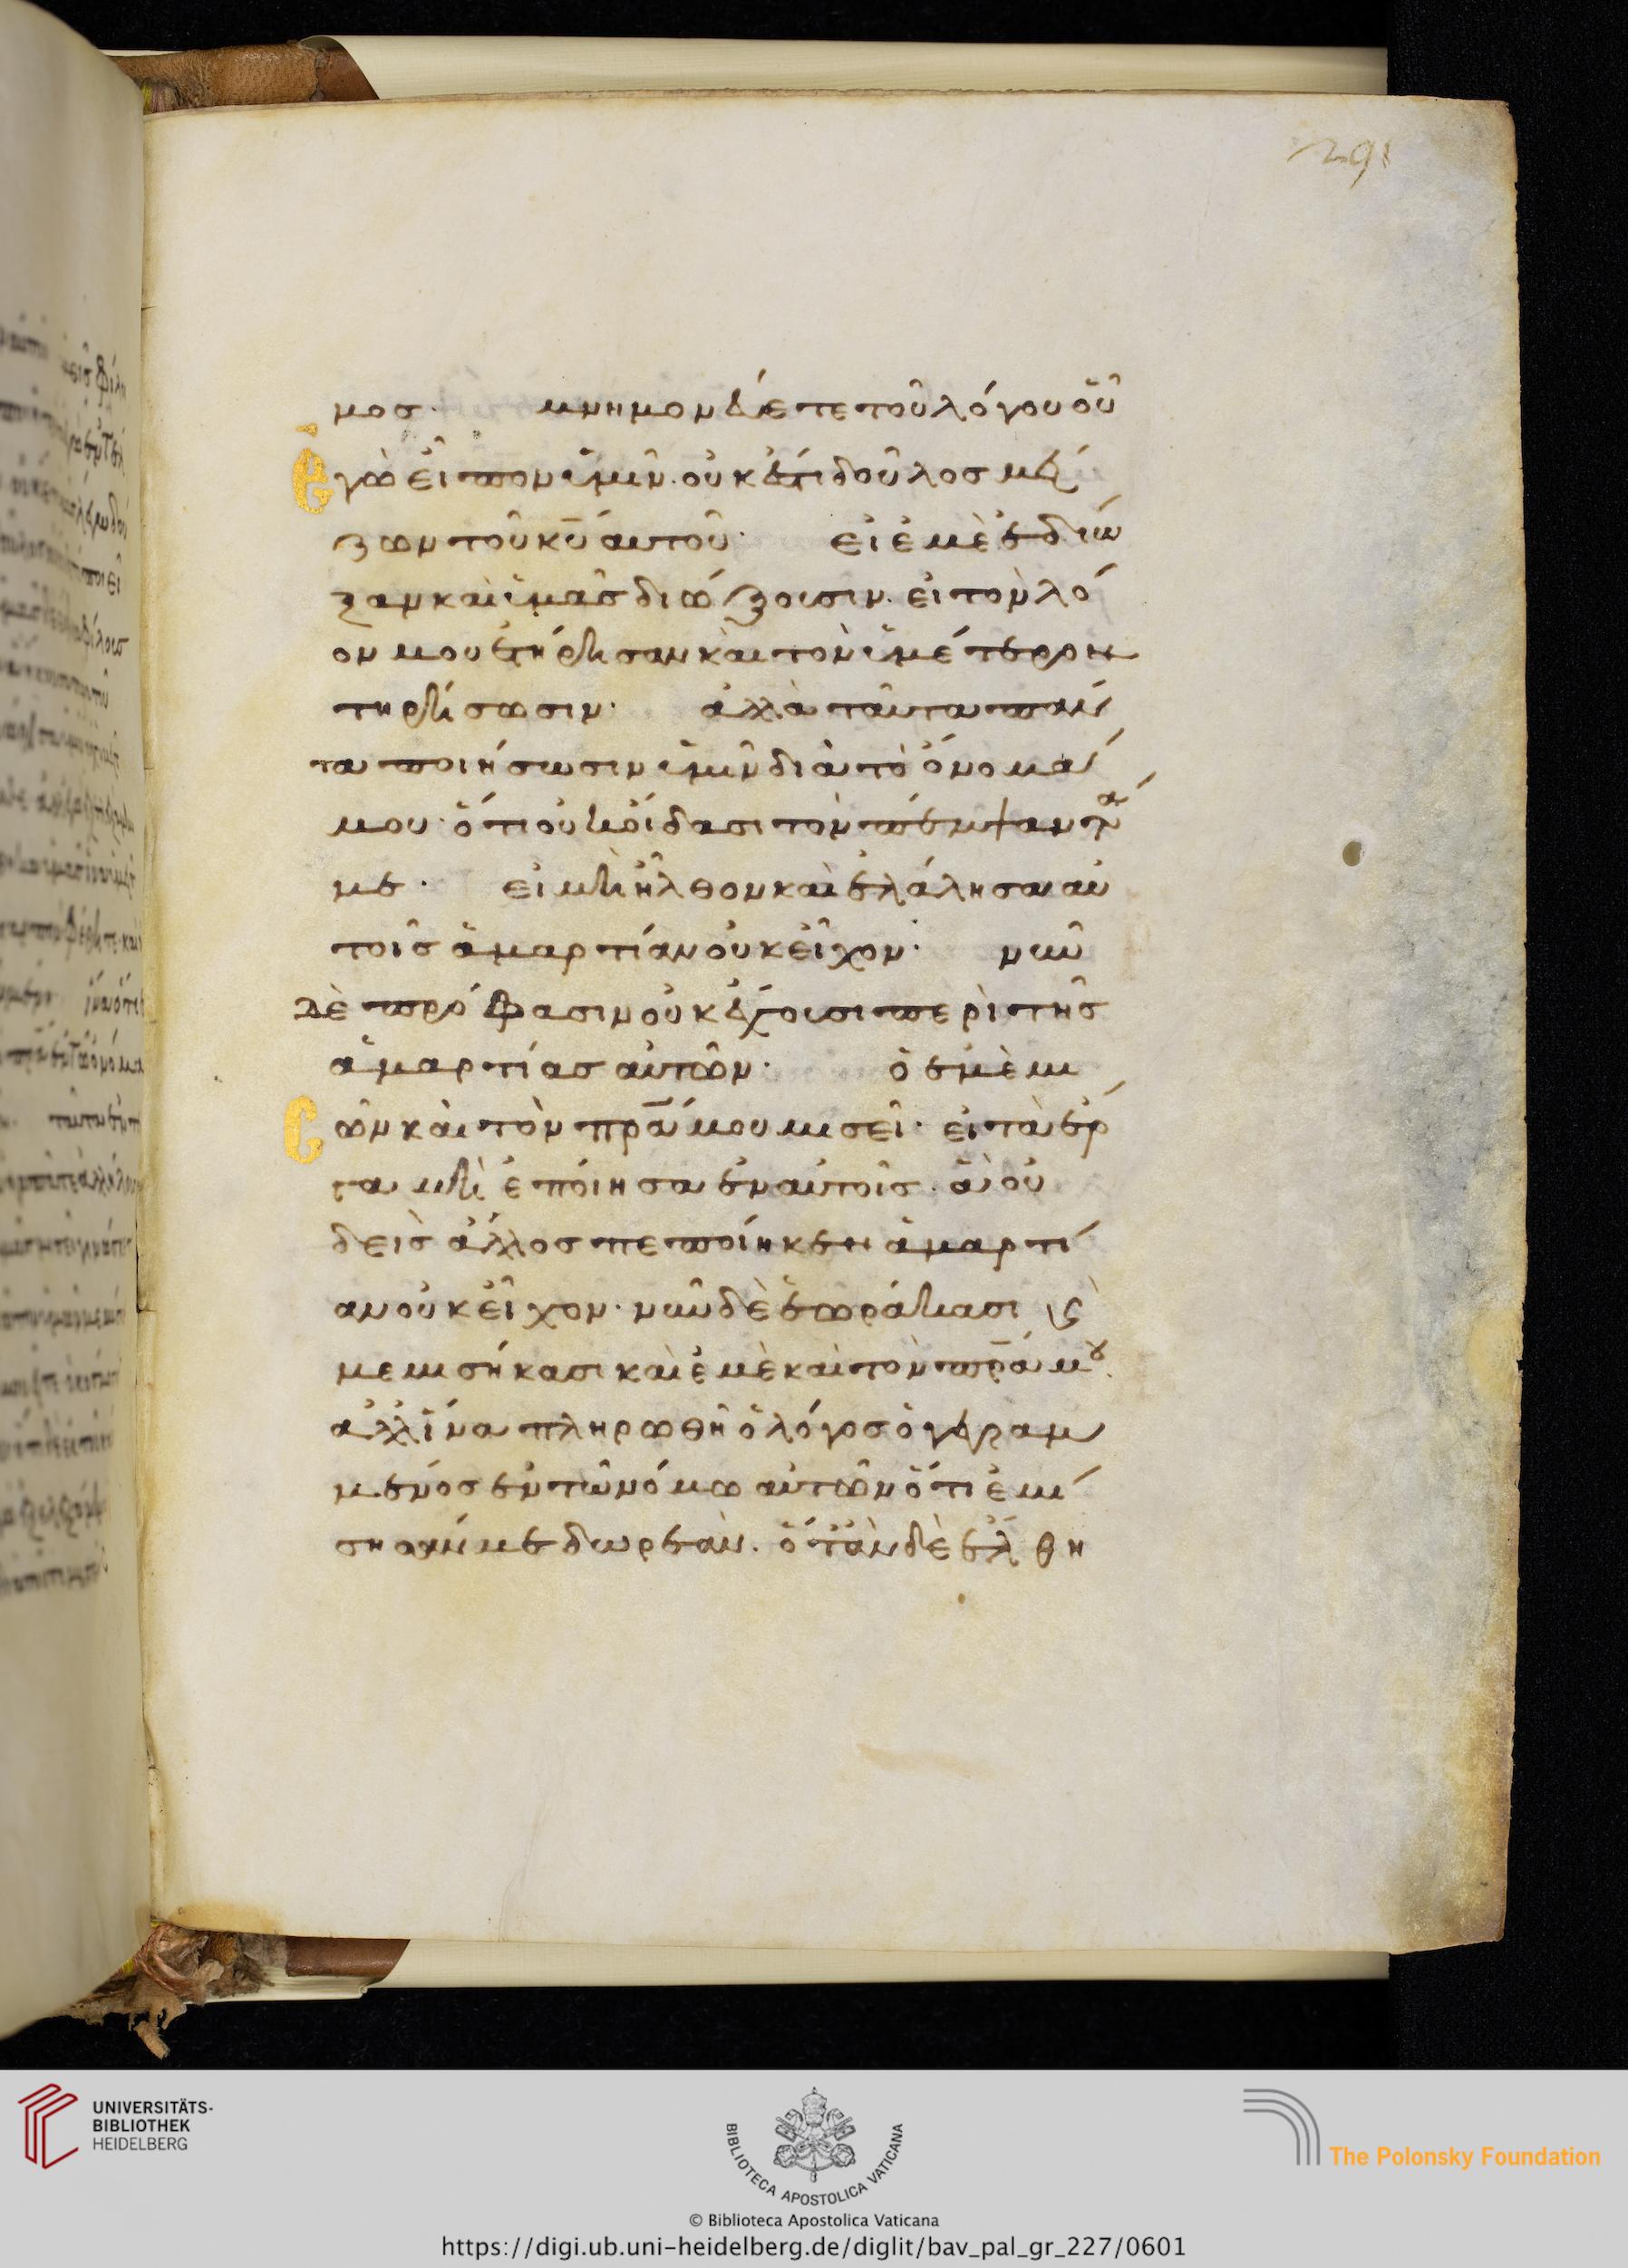 291
μοσ· μνημονεύετε τοῦ λόγου οὗ
ἐγὼ εἶπον ὑμῖν· οὐκ ἔστι δοῦλοσ μεί
ζων τοῦ κ̅υ̅ αὐτοῦ· εἰ ἐμὲ ἐδίω
ξαν καὶ ὑμᾶσ διώξουσιν· εἰ τὸν λό
ον μου ἐτήρησαν καὶ τὸν ὑμέτερον
τηρήσωσιν· ἀλλὰ ταῦτα πάν
τα ποιήσωσιν ὑμῖν διὰ τὸ ὄνομά
μου· ὅτι οὐκ οἴδασι τὸν πέμψαντά
με· εἰ μὴ ἦλθον καὶ ἐλάλησα αὐ
τοῖσ ἁμαρτίαν οὐκ εἶχον· νῦν
δὲ πρόφασιν οὐκ ἔχουσι περὶ τῆσ
ἁμαρτίασ αὐτῶν· ὁ ἐμὲ μι
σῶν καὶ τὸν π̅ρ̅α̅ μου μισεῖ· εἰ τὰ ἔρ
γα μὴ ἐποίησα ἐν αὐτοῖσ· ἃ οὐ
δεὶσ ἄλλοσ πεποίηκεν ἁμαρτί
αν οὐκ εἶχον· νῦν δὲ ἑωράκασι ϗ
μεμισήκασι καὶ ἐμὲ καὶ τὸν π̅ρ̅α̅ μου·
ἀλλ' ἵνα πληρωθῆ ὁ λόγοσ ὁ γεγραμ
μένοσ ἐν τῶ νόμω αὐτῶν ὅτι ἐμί
σησάν με δωρεάν· ὅταν δὲ ἔλθη
UNIVERSITÄTS-
BIBLIOTHEK
HEIDELBERG
BIBLIOTECA APOSTOLICA VATICANA
The Polonsky Foundation
© Biblioteca Apostolica Vaticana
https://digi.ub.uni-heidelberg.de/diglit/bav_pal_gr_227/0601